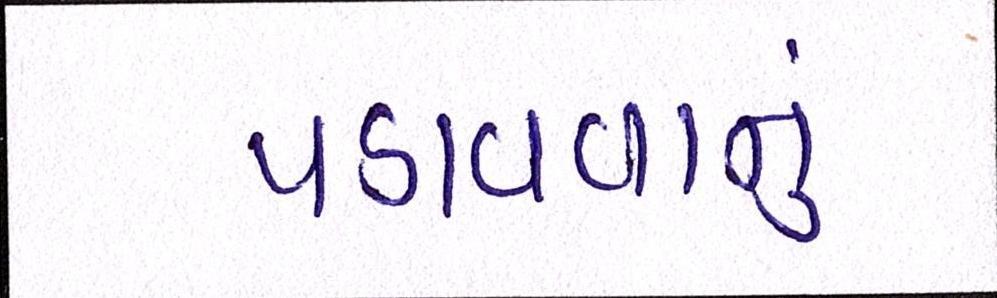 પડાવવાનું